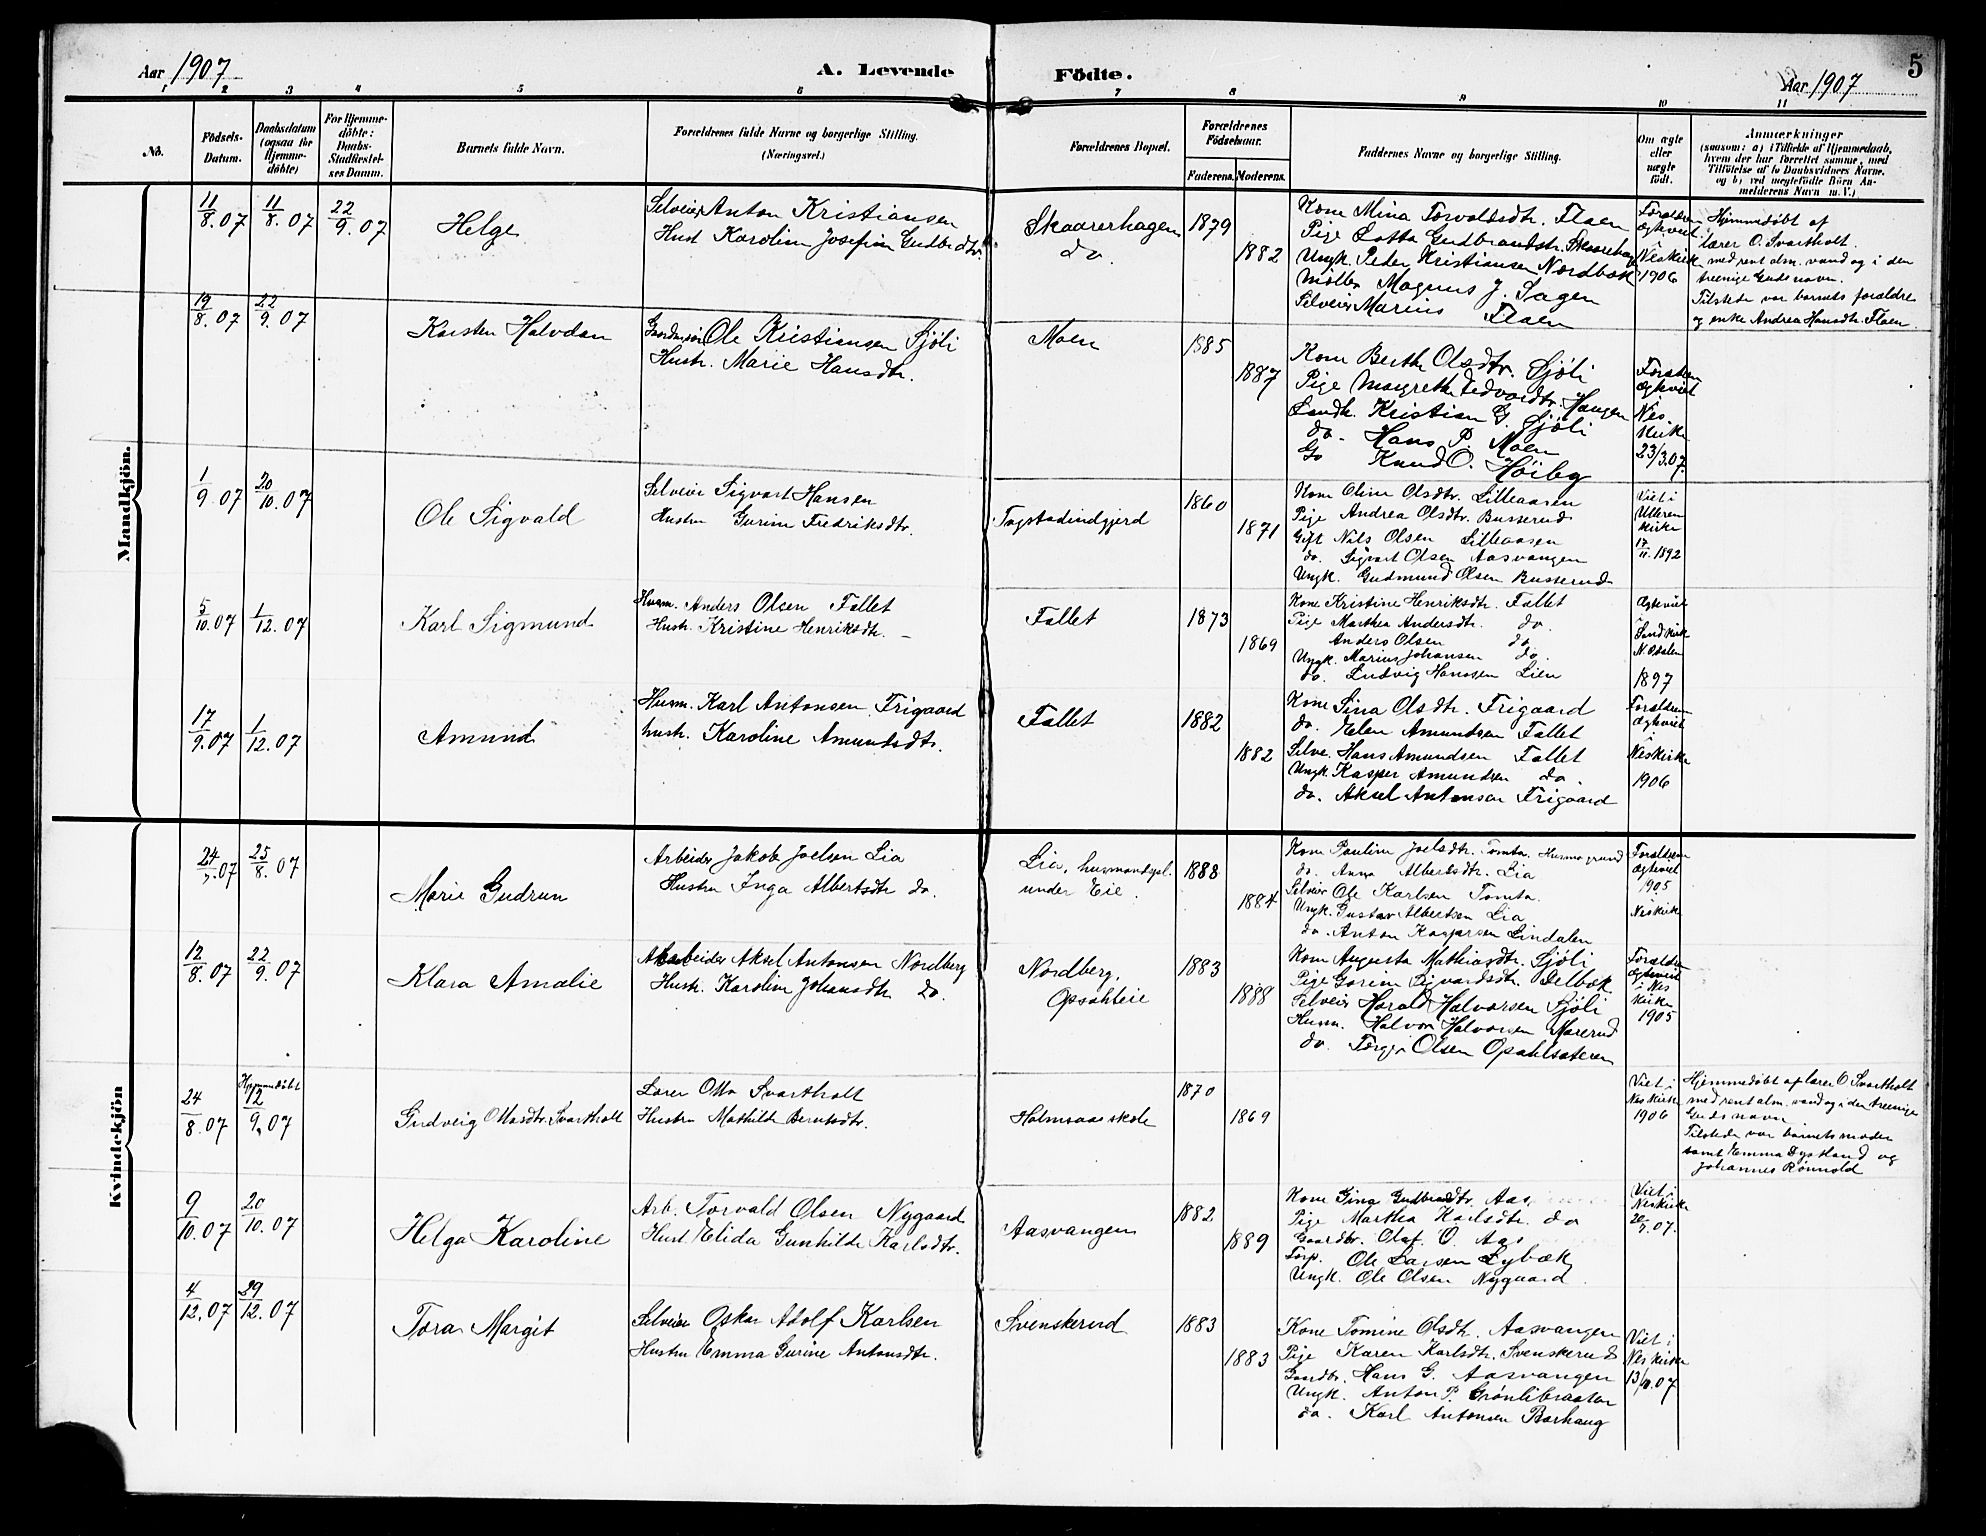 Aar 1907
A. Levende Födte.
5
Aar 1907
1 2 3 4 5 6 7 8 9 10 11
No.
Födsels-
Datum.
Daabsdatum
(ogsaa for
Hjemme-
döbte)
For Hjemme-
döbte:
Daabs-
Stadfæstel-
ses Datum.
Barnets fulde Navn.
Forældrenes fulde Navne og borgerlige Stilling.
(Næringsvei.)
Forældrenes Bopæl.
Forældrenes
Födselsaar.
Faderens. Moderens.
Faddernes Navne og borgerlige Stilling.
Om ægte
eller
uægte
födt.
Anmærkninger
(saasom: a) i Tilfælde af Hjemmedaab,
hvem der har forrettet samme, med
Tilföielse af to Daabsvidners Navne,
og b) ved uegtefödte Börn An-
melderens Navn m. V.)
Mandkjön.
11/8.07 11/8.07 22/9.07
Helge
Selveier Anton Kristiansen
Hust Karolin Josefin Gudbrdtr.
Skaarerhagen
do.
1879
1882
Kone Mina Torvaldsdtr. Flaen
Pige Lotta Gudbrandstr. Skaarehag
Ungk. Peder Kristiansen Nordbæk
Möller Magnus J. Sagen
Selveier Marius Flaen
Forældren
ægteviet
i
Neskirk
1906
Hjemmedøbt af
lærer O. Svartholt.
med rent alm. vand og i den
treenige Guds navn.
Tilstede var barnets forældre
og enke Andrea Hansdtr. Flaen
19/8.07 22/9.07
Karsten Halvdan
Ole Kristiansen Sjöli
Hustr. Marie Hansdtr.
Moen
1885
1887
Kone Berthe Olsdtr. Sjöli
Pige Margrethe Edvardtr. Haugen
Landh. Kristian G. Sjöli
do. Hans P. Moen
Knud O. Höiby
Forældren
ægteviet
i
Nes
kirke
23/3.07.
1/9.07 20/10.07
Ole Sigvald
Selveier Sigvart Hansen
Hustru Gurine Fredriksdtr.
Togstadindgjerd
1860
1871
Kone Oline Olsdtr. Lilleaasen
Pige Andrea Olsdtr. Busserud
Gift Nils Olsen Lilleaasen
do. Sigvart Olsen Aasvangen
Ungk. Gudmund Olsen Busserud
Viet i
Ulleren
kirke
17/11.1892
5/10.07 1/12.07
Karl Sigmund
Husm. Anders Olsen Fallet
Hustr. Kristine Henriksdtr. —
Fallet
1873
1869
Kone Kristine Henriksdtr. Fallet
Pige Marthea Andersdtr. do.
Anders Olsen do
Ungk. Marius Johansen do.
do. Ludvig Hanssen Lien
Ægteviet
i
Sandkirk
N. Odalen
1897
17/9.07 1/12.07
Amund
Husm. Karl Antonsen Frigaard
hustr. Karoline Amundsdtr.
Fallet
1882
1882
Kone Sina Olsdtr. Frigaard
do. Elen Amundsen Fallet
Selve. Hans Amundsen Fallet
Ungk. Kasper Amundsen do.
do. Aksel Antonsen Frigaard
Forældren
ægteviet
i
Neskirke
1906
Kvindekjön
24/7.07 25/8.07
Marie Gudrun
Arbeider Jakob Joelsen Lia
Hustru Inga Albertsdtr do.
Lia, husmandspl.
under Eie.
1888
1884
Kone Pauline Joelsdtr. Tomta Husmogrund
do. Anna Albertsdtr. Lia
Selveier Ole Karlsen Tomta.
Ungk. Gustav Albertsen Lia
do. Anton Kaspersen Lindalen
Forældren
ægteviet
1905
Neskirk
12/8.07 22/9.07
Klara Amalie
Arbeider Aksel Antonsen Nordberg
Hustr. Karoline Johansdtr do.
Nordberg,
Opsahleie
1883
1888
Kone Augusta Mathiasdtr. Sjöli
Pige Gorine Sigvardsdtr. Delbæk
Selveier Harald Halvorsen Sjöli
Husm. Halvor Halvorsen Marerud
do. Torger Olsen Opsahlsateren
Forældren
ægteviet
i Nes
kirke
1905
24/8.07 Hjemmedøbt 12/9.07
Gudveig Ottosdtr. Svartholt
Lærer Otto Svartholt
Hustru Mathilde Berntsdtr.
Holmsaas skole
1870
1869
Viet i
Nes kirke
1906
Hjemmedøbt af lærer O Svartholt
med rent alm. vand og i den treenige
Guds navn
Tilstede var barnets moder
samt Emma Dystland og
Johannes Rønnold
9/10.07 20/10.07
Helga Karoline
Arb. Torvald Olsen Nygaard
Hust Elida Gunhilde Karlsdtr.
Aasvangen
1882
1889
Kone Gina Gudbrandtr. Aas
Pige Martha Karlsdtr. do
Gaardbr. Olaf O. Aas
Torp. Ole Larsen Lybæk
Ungk. Ole Olsen Nygaard.
Viet i
Neskirke
20/7.07.
4/12.07 29/12.07
Tora Margit
Selveier Oskar Adolf Karlsen
Hustru Emma Gurine Antonsdtr.
Svenskerud
1883
1883
Kone Tomine Olsdtr. Aasvangen
Pige Karen Karlsdtr. Svenskerud
Gaardbr. Hans G. Aasvangen
Ungk. Anton P. Grönlibraaten
do. Karl Antonsen Barhaug
Viet i
Nes kirke